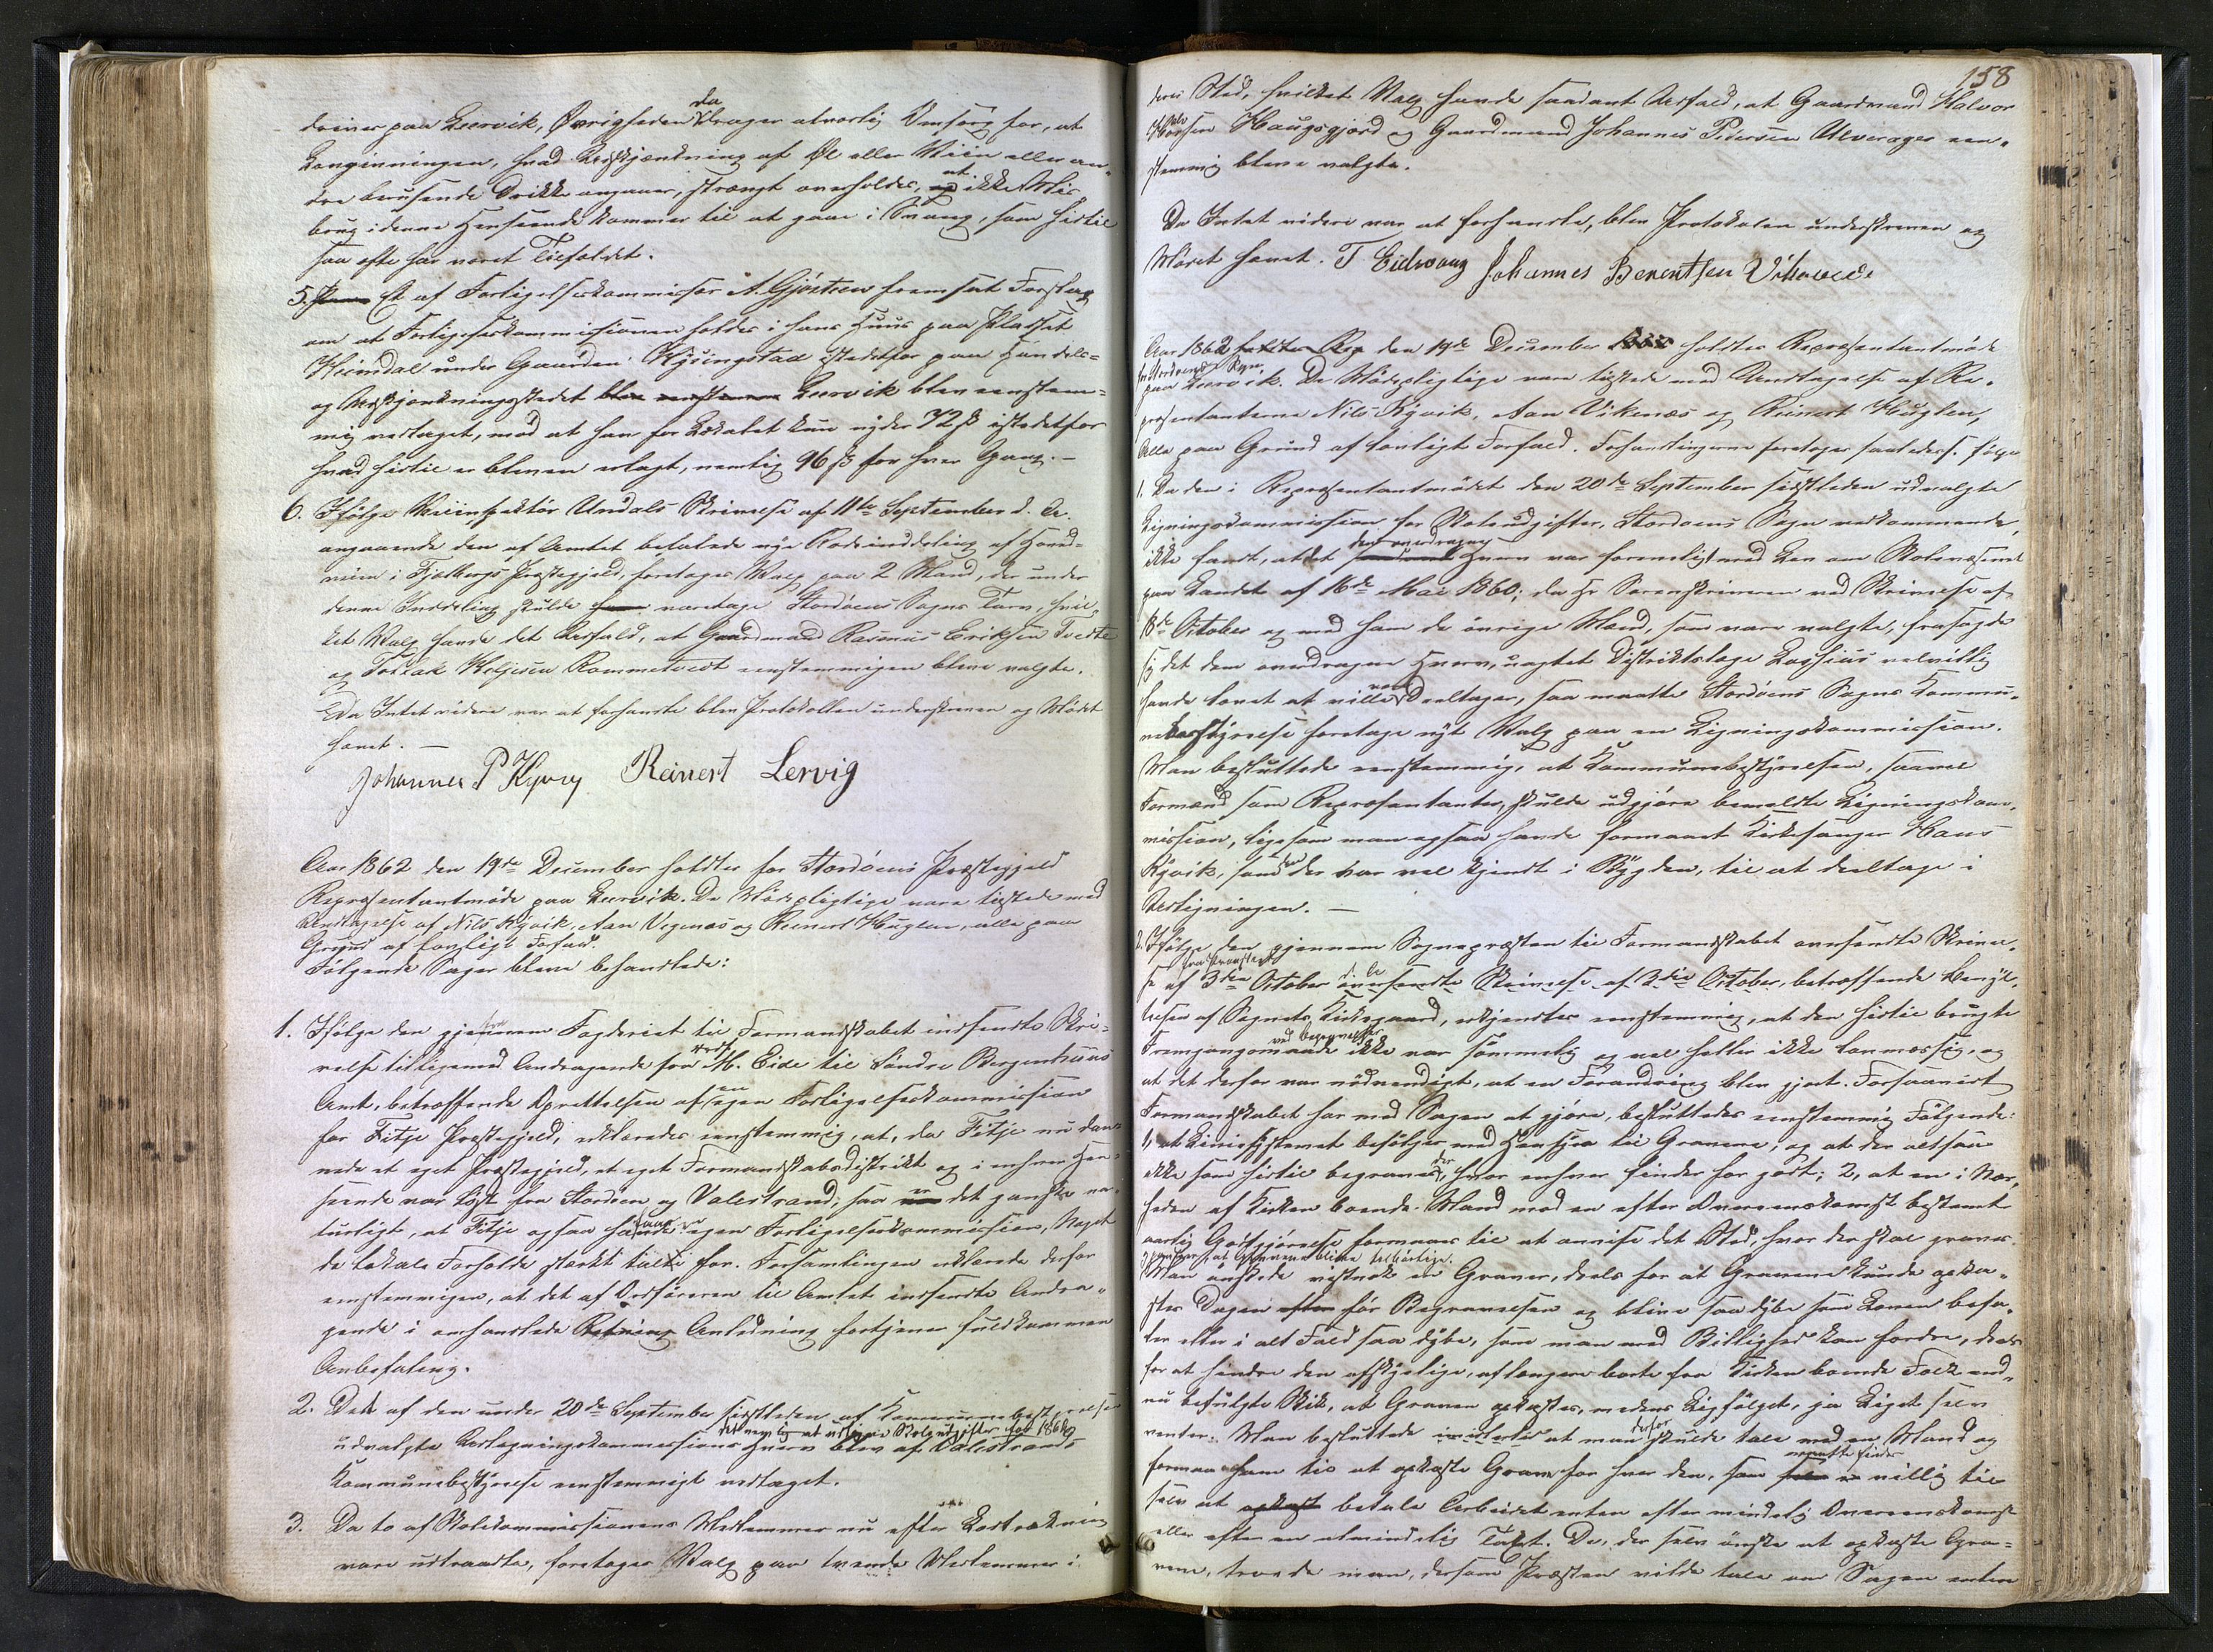 drives paa Leervik, Øvrigheden da drager alvorlig Omsorg for, at
Lovgivningen, hvad Udskjænkning af Øl eller Viin eller an-
dre berusende Drikke angaaer, strængt overholdes, at ikke Mis-
brug i denne Henseende kommer til at gaae i Svang, som hidtil
saa ofte har været Tilfældet.
5. Et af Forligelseskommissær A. Gjøsteen fremsat Forslag
om at Forligelseskommissionen holdes i hans Huus paa Pladset
Heimdal under Gaarden Kyvingstad istedetfor paa Handels-
og Udskjænkningsstedet Leervik blev eenstem-
mig vedtaget, mod at han for Lokalet kun nyder 72 ß istedetfor
hvad hidtil er bleven erlagt, nemlig 96 ß for hver Gang. -
6. Ifølge Veiinspektør Undals Skrivelse af 11te September d. A.
angaaende den af Amtet befalede nye Rodeinddeling af Hoved-
veien i Fjelbergs Præstegjeld, foretoges Valg paa 2 Mænd, der under
denne Inddeling skulde varetage Stordøens Sogns Tarv, hvil-
ket Valg havde det Udfald, at Gaardmand Rasmus Eriksen Tvedte
og Torkel Helgesen Rommetvedt eenstemmigen bleve valgte.
Da Intet videre var at forhandle blev Protokollen underskreven og Mødet
hævet. -
Johannes P Hyving Reinert Lervig
Aar 1862 den 19de December holdtes for Stordøens Præstegjeld
Repræsentantmøde paa Leervik. De Mødepligtige vare tilstede med
Undtagelse af Nils Kyvik, Aan Vigenæs og Reinert Huglen, alle paa
Grund af lovligt Forfald.
Følgende Sager bleve behandlede:
1. Ifølge den gjennem Fogderiet til Formandskabet indsendte Skri-
velse tilligemed Andragende fra Ordf. M. Eide til Søndre Bergenhuus
Amt, betræffende Oprettelsen af en egen Forligelseskommission
for Fitje Præstegjeld, erklæredes eenstemmig, at, da Fitje nu dan-
nede et eget Præstegjeld, et eget Formandskabsdistrikt og i enhver Hen-
seende var løst fra Stordøen og Valestrand, saa er det ganske na-
turligt, at Fitje ogsaa faaer en egen Forligelseskommission, hvorfor
de lokale Forholde stærkt tale for. Forsamlingen erklærede derfor
eenstemmigen, at det af Ordføreren til Amtet indsendte Andra-
gende i omhandlede Anledning fortjener fuldkommen
Anbefaling.
2. Det af den under 20de September sidstleden af Kommunebestyrelsen
det nemlig at udligne Skoleudgifter for 1862
udvalgte Ligningskommissions Hverv blev af Valestrands
Kommunebestyrelse eenstemmigt vedtaget.
3. Da to af Skolekommissionens Medlemmer nu efter Lodtrækning
vare udtraadte, foretoges Valg paa tvende Medlemmer i
158
deres Sted, hvilket Valg havde saadant Udfald, at Gaardmand Halvor
Halvorsen Haugsgjerd og Gaardmand Johannes Pedersen Alverager een-
stemmig bleve valgte.
Da Intet videre var at forhandle, blev Protokolen underskreven og
Mødet hævet. T Eidsvaag Johannes Berentsen Vihovde
Aar 1862 den 19de December holdtes Repræsentantmøde
for Stordøens Sogn
paa Leervik. De Mødepligtige vare tilstede med Undtagelse af Re-
præsentanterne Nils Kyvik, Aan Vikenæs og Reinert Huglen,
Alle paa Grund af lovligt Forfald. Forhandlingerne foretoges saaledes s. følge
1. Da den i Repræsentantmødet den 20de September sidstleden udvalgte
Ligningskommission for Skoleudgifter, Stordøens Sogn vedkommende,
ikke fandt, at det den overdragne Hverv var foreneligt med Lov om Skolevæsenet
paa Landet af 16de Mai 1860; da Hr Sorenskriveren ved Skrivelse af
18de October og med ham de øvrige Mænd, som vare valgte, frasagde
sig det dem overdragne Hverv, uagtet Distriktslæge Lossius velvillig
havde lovet at ville være Deeltager, saa maatte Stordøens Sogns Kommu-
nebestyrelse foretage nyt Valg paa en Ligningskommission.
Man besluttede eenstemmig, at Kommunebestyrelsen, saavel
Formænd som Repræsentanter, skulde udgjøre bemeldte Ligningskom-
mission, ligesom man ogsaa havde formaaet Kirkesanger Hans
Kyvik, som der har vel kjendt i Bygden, til at deeltage i
Udligningen. -
2. Ifølge den gjennem Sognepræsten til Formandskabet oversendte Skrivel-
se fra Provsten af 3die October d. A. oversendte Skrivelse af 3die October, betræffende Benyt-
telsen af Sognets Kirkegaard, erkjendtes eenstemmig, at den hidtil brugte
Fremgangsmaade ved Begravelser ikke var sømmelig og vel heller ikke lovmæssig, og
at det derfor var nødvendigt, at en Forandring blev gjort. Forsaavidt
Formandskabet har med Sagen at gjøre, besluttedes eenstemmig Følgende:
1, at Liniesystemet befølges med Hensyn til Gravene, og at der altsaa
ikke som hidtil begraves der, hvor enhver finder for godt; 2, at en i Nær-
heden af Kirken boende Mand mod en efter Overenskomst bestemt
aarlig Godtgjørelse formaaes til at anvise det Sted, hvor der skal graves
3, at Gravene blive tilbørlige.
Man ønskede vistnok en Graver, deels for at Gravene kunde opka-
stes Dagen før Begravelsen og blive saa dybe som Loven befa-
ler eller i alt Fald saa dybe, som man med Billighed kan fordre, deels
for at hindre den afskyelige, af længere borte fra Kirken boende Folk end-
nu befulgte Skik, at Graven opkastes, medens Ligfølget, ja Liget selv
venter. Man besluttede at man derfor skulde tale med en Mand og
formaae ham til at opkaste Grave for hver den, som maatte findes villig til
selv at betale Arbeidet enten efter mindelig Overenskomst
eller efter en almindelig Taxt. De, der selv ønske at opkaste Gra-
vene, troede man, dersom Præsten vilde tale om Sagen enten